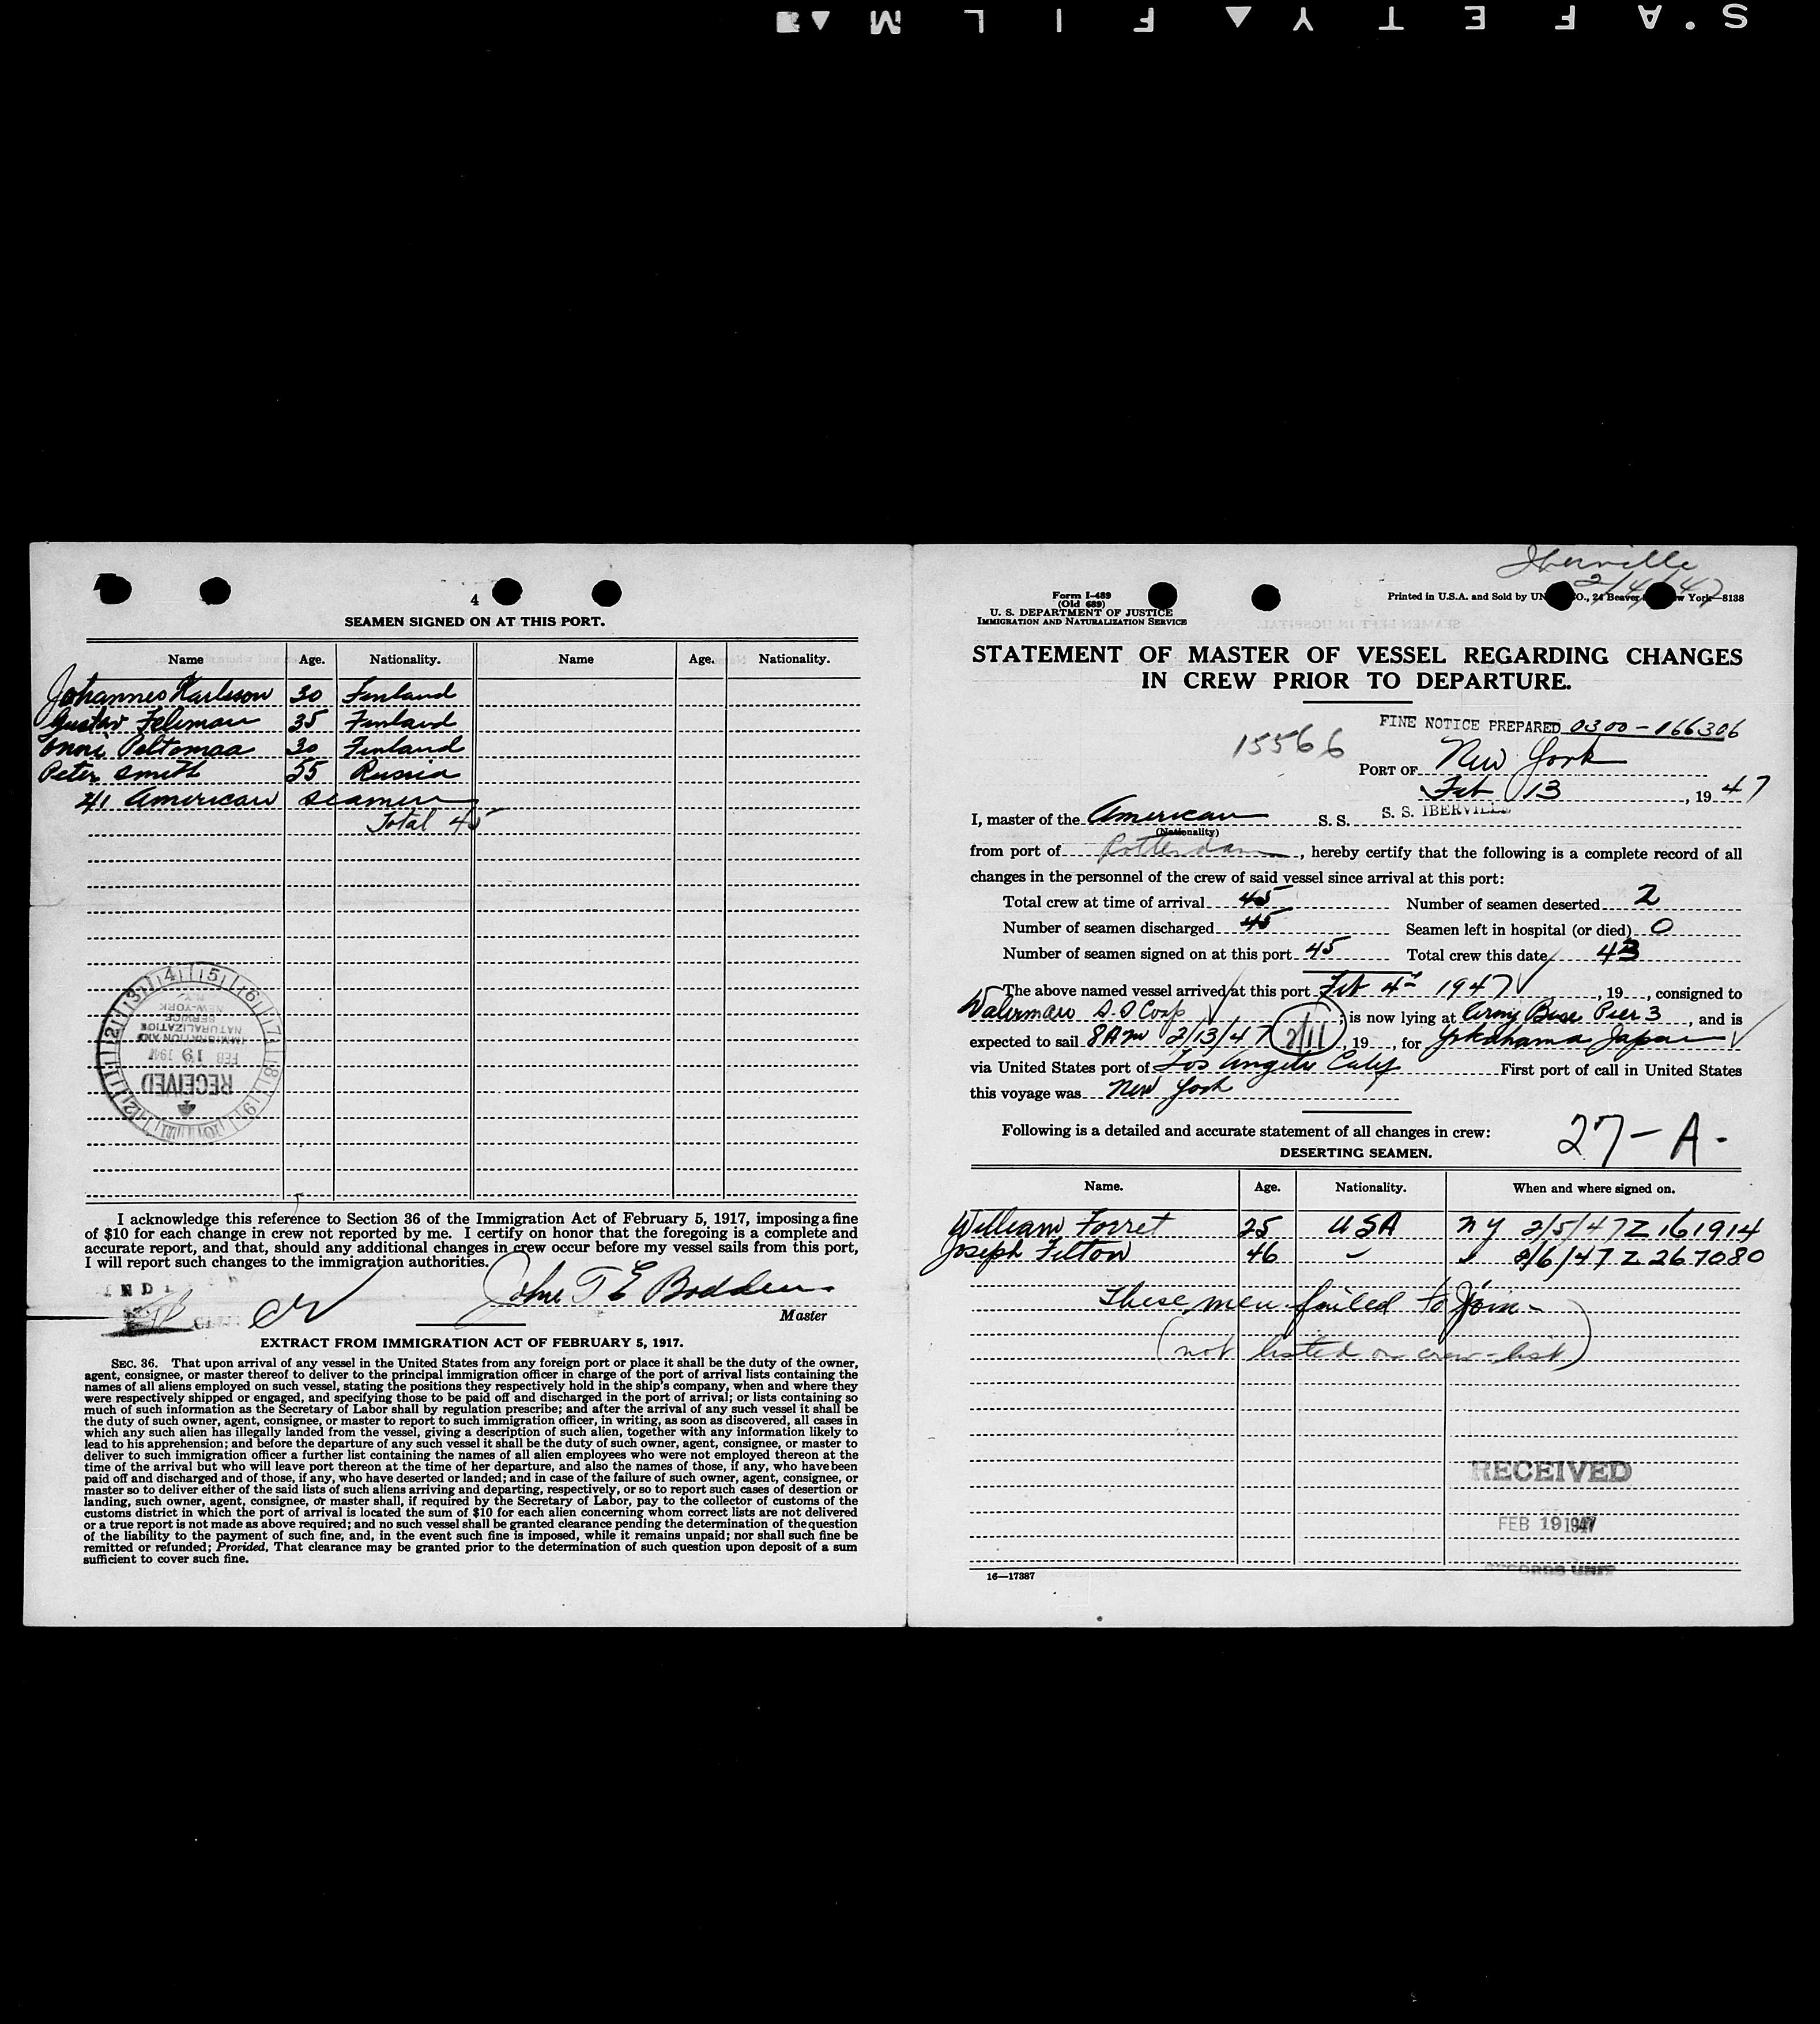 SAFETY FILM
4
SEAMEN SIGNED ON AT THIS PORT.
Name Age. Nationality. Name Age. Nationality.
Johannes Karlsson 30 Finland
Gustav Feliman 35 Finland
Onni Peltomaa 30 Finland
Peter Smith 55 Russia
41 American seamen
Total 45
RECEIVED
FEB 19 1947
IMMIGRATION AND
NATURALIZATION
SERVICE
NEW-YORK
N.Y.
I acknowledge this reference to Section 36 of the Immigration Act of February 5, 1917, imposing a fine
of $10 for each change in crew not reported by me. I certify on honor that the foregoing is a complete and
accurate report, and that, should any additional changes in crew occur before my vessel sails from this port,
I will report such changes to the immigration authorities.
John T E Bodden
Master
EXTRACT FROM IMMIGRATION ACT OF FEBRUARY 5, 1917.
SEC. 36. That upon arrival of any vessel in the United States from any foreign port or place it shall be the duty of the owner,
agent, consignee, or master thereof to deliver to the principal immigration officer in charge of the port of arrival lists containing the
names of all aliens employed on such vessel, stating the positions they respectively hold in the ship's company, when and where they
were respectively shipped or engaged, and specifying those to be paid off and discharged in the port of arrival; or lists containing so
much of such information as the Secretary of Labor shall by regulation prescribe; and after the arrival of any such vessel it shall be
the duty of such owner, agent, consignee, or master to report to such immigration officer, in writing, as soon as discovered, all cases in
which any such alien has illegally landed from the vessel, giving a description of such alien, together with any information likely to
lead to his apprehension; and before the departure of any such vessel it shall be the duty of such owner, agent, consignee, or master to
deliver to such immigration officer a further list containing the names of all alien employees who were not employed thereon at the
time of the arrival but who will leave port thereon at the time of her departure, and also the names of those, if any, who have been
paid off and discharged and of those, if any, who have deserted or landed; and in case of the failure of such owner, agent, consignee, or
master so to deliver either of the said lists of such aliens arriving and departing, respectively, or so to report such cases of desertion or
landing, such owner, agent, consignee, or master shall, if required by the Secretary of Labor, pay to the collector of customs of the
customs district in which the port of arrival is located the sum of $10 for each alien concerning whom correct lists are not delivered
or a true report is not made as above required; and no such vessel shall be granted clearance pending the determination of the question
of the liability to the payment of such fine, and, in the event such fine is imposed, while it remains unpaid; nor shall such fine be
remitted or refunded; Provided, That clearance may be granted prior to the determination of such question upon deposit of a sum
sufficient to cover such fine.
Iberville
2/4/47
Form I-489
(Old 689)
U. S. DEPARTMENT OF JUSTICE
IMMIGRATION AND NATURALIZATION SERVICE
Printed in U.S.A. and Sold by UN CO., 24 Beaver w York—8138
STATEMENT OF MASTER OF VESSEL REGARDING CHANGES
IN CREW PRIOR TO DEPARTURE.
FINE NOTICE PREPARED 0300-166306
15566
PORT OF New York
Feb 13, 1947
I, master of the American S. S. S. S. IBERVILLE
(Nationality)
from port of Rotterdam, hereby certify that the following is a complete record of all
changes in the personnel of the crew of said vessel since arrival at this port:
Total crew at time of arrival 45 Number of seamen deserted 2
Number of seamen discharged 45 Seamen left in hospital (or died) 0
Number of seamen signed on at this port 45 Total crew this date 43
The above named vessel arrived at this port Feb 4th 1947, 19, consigned to
Waterman S.S Corp; is now lying at Army Base Pier 3, and is
expected to sail 8 AM 2/13/47 2/11, 19, for Yokahama Japan
via United States port of Los Angeles Calif First port of call in United States
this voyage was New York
Following is a detailed and accurate statement of all changes in crew:
27-A-
DESERTING SEAMEN.
Name. Age. Nationality. When and where signed on.
William Forret 25 USA NY 2/5/47 Z 161914
Joseph Felton 46 2/6/47 Z 267080
These men failed to join-
(not listed on crew-list)
RECEIVED
FEB 19 1947
RECORDS UNIT
16—17387